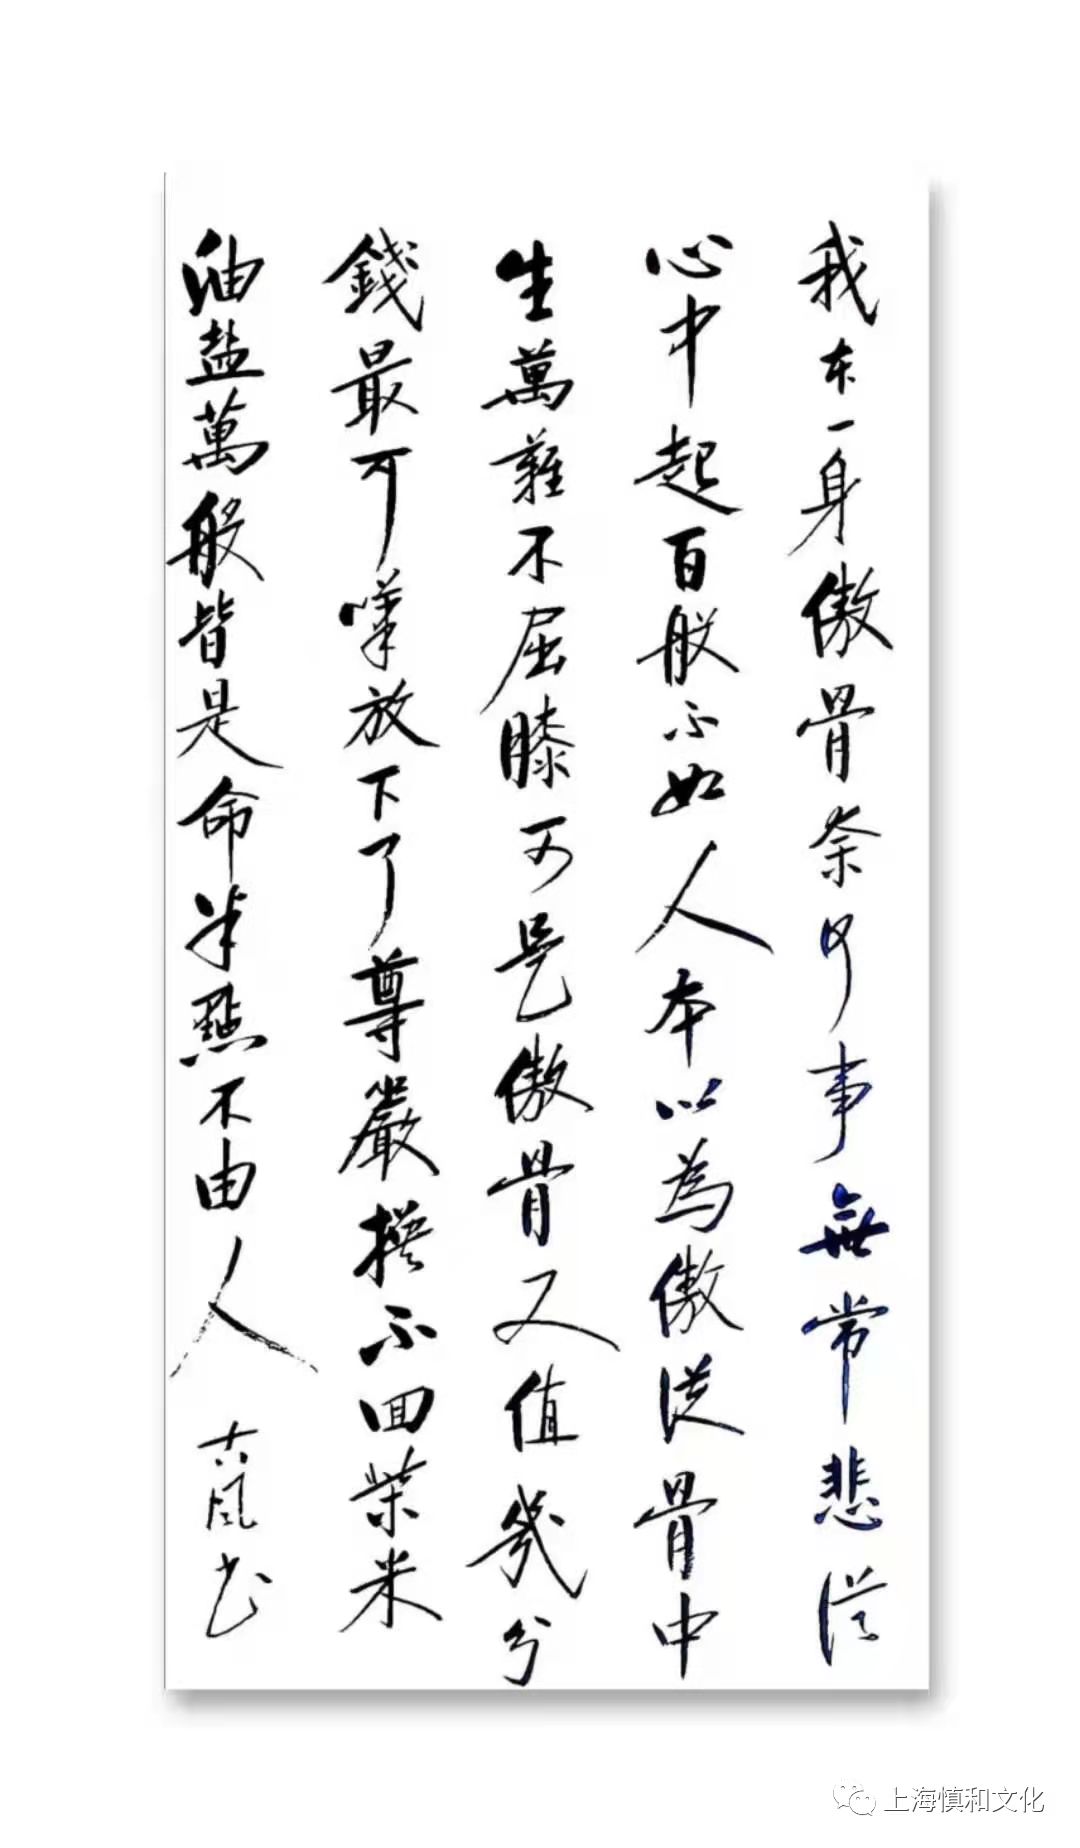 我本一身傲骨奈何事無常悲從
心中起百般不如人本以為傲從骨中
生萬難不屈膝可是傲骨又值幾分
錢最可嘆放下了尊嚴換不回柴米
油盐萬般皆是命半點不由人 風书
上海慎和文化